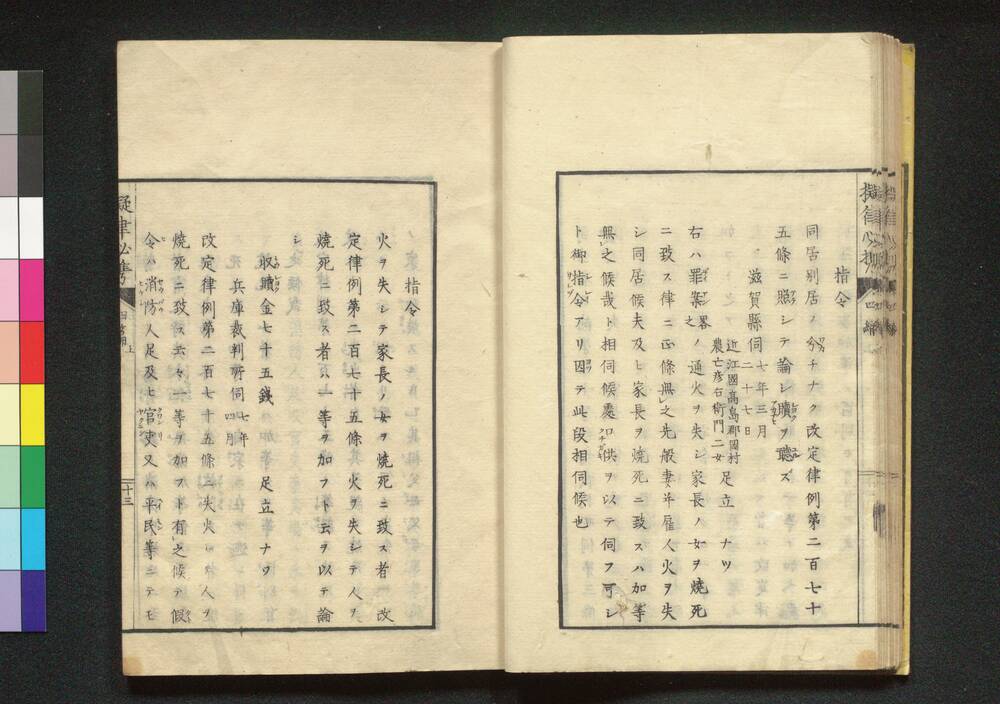 指令
同居別居ノ分チナク改定律例第二百七十
五條ニ照シテ論シ贖ヲ聽ス
滋賀縣伺 七年三月二十七日
近江國高島郡國村
農亡彦右衛門二女 足立ナツ
右ハ罪案畧之ノ通火ヲ失シ家長ノ女ヲ燒死
ニ致ス律ニ正條無之先般妻并雇人火ヲ失
シ同居候夫及ヒ家長ヲ燒死ニ致スハ加等
無之候哉ト相伺候處口供ヲ以テ伺フ可シ
ト御指令アリ因テ此段相伺候也
指令
火ヲ失シテ家長ノ女ヲ燒死ニ致ス者ハ改
定律例第二百七十五條火ヲ失シテ人ヲ
燒死ニ致ス者ハ一等ヲ加フト云ヲ以テ論
シ
收贖金七十五錢 足立ナツ
兵庫裁判所伺 七年四月
改定律例第二百七十五條ニ失火シテ人ヲ
燒死ニ致云々一等ヲ加フト有之候ハ假
令ハ消防人足及ヒ官吏又ハ平民等ニテモ
擬律必携
四篇上
十三